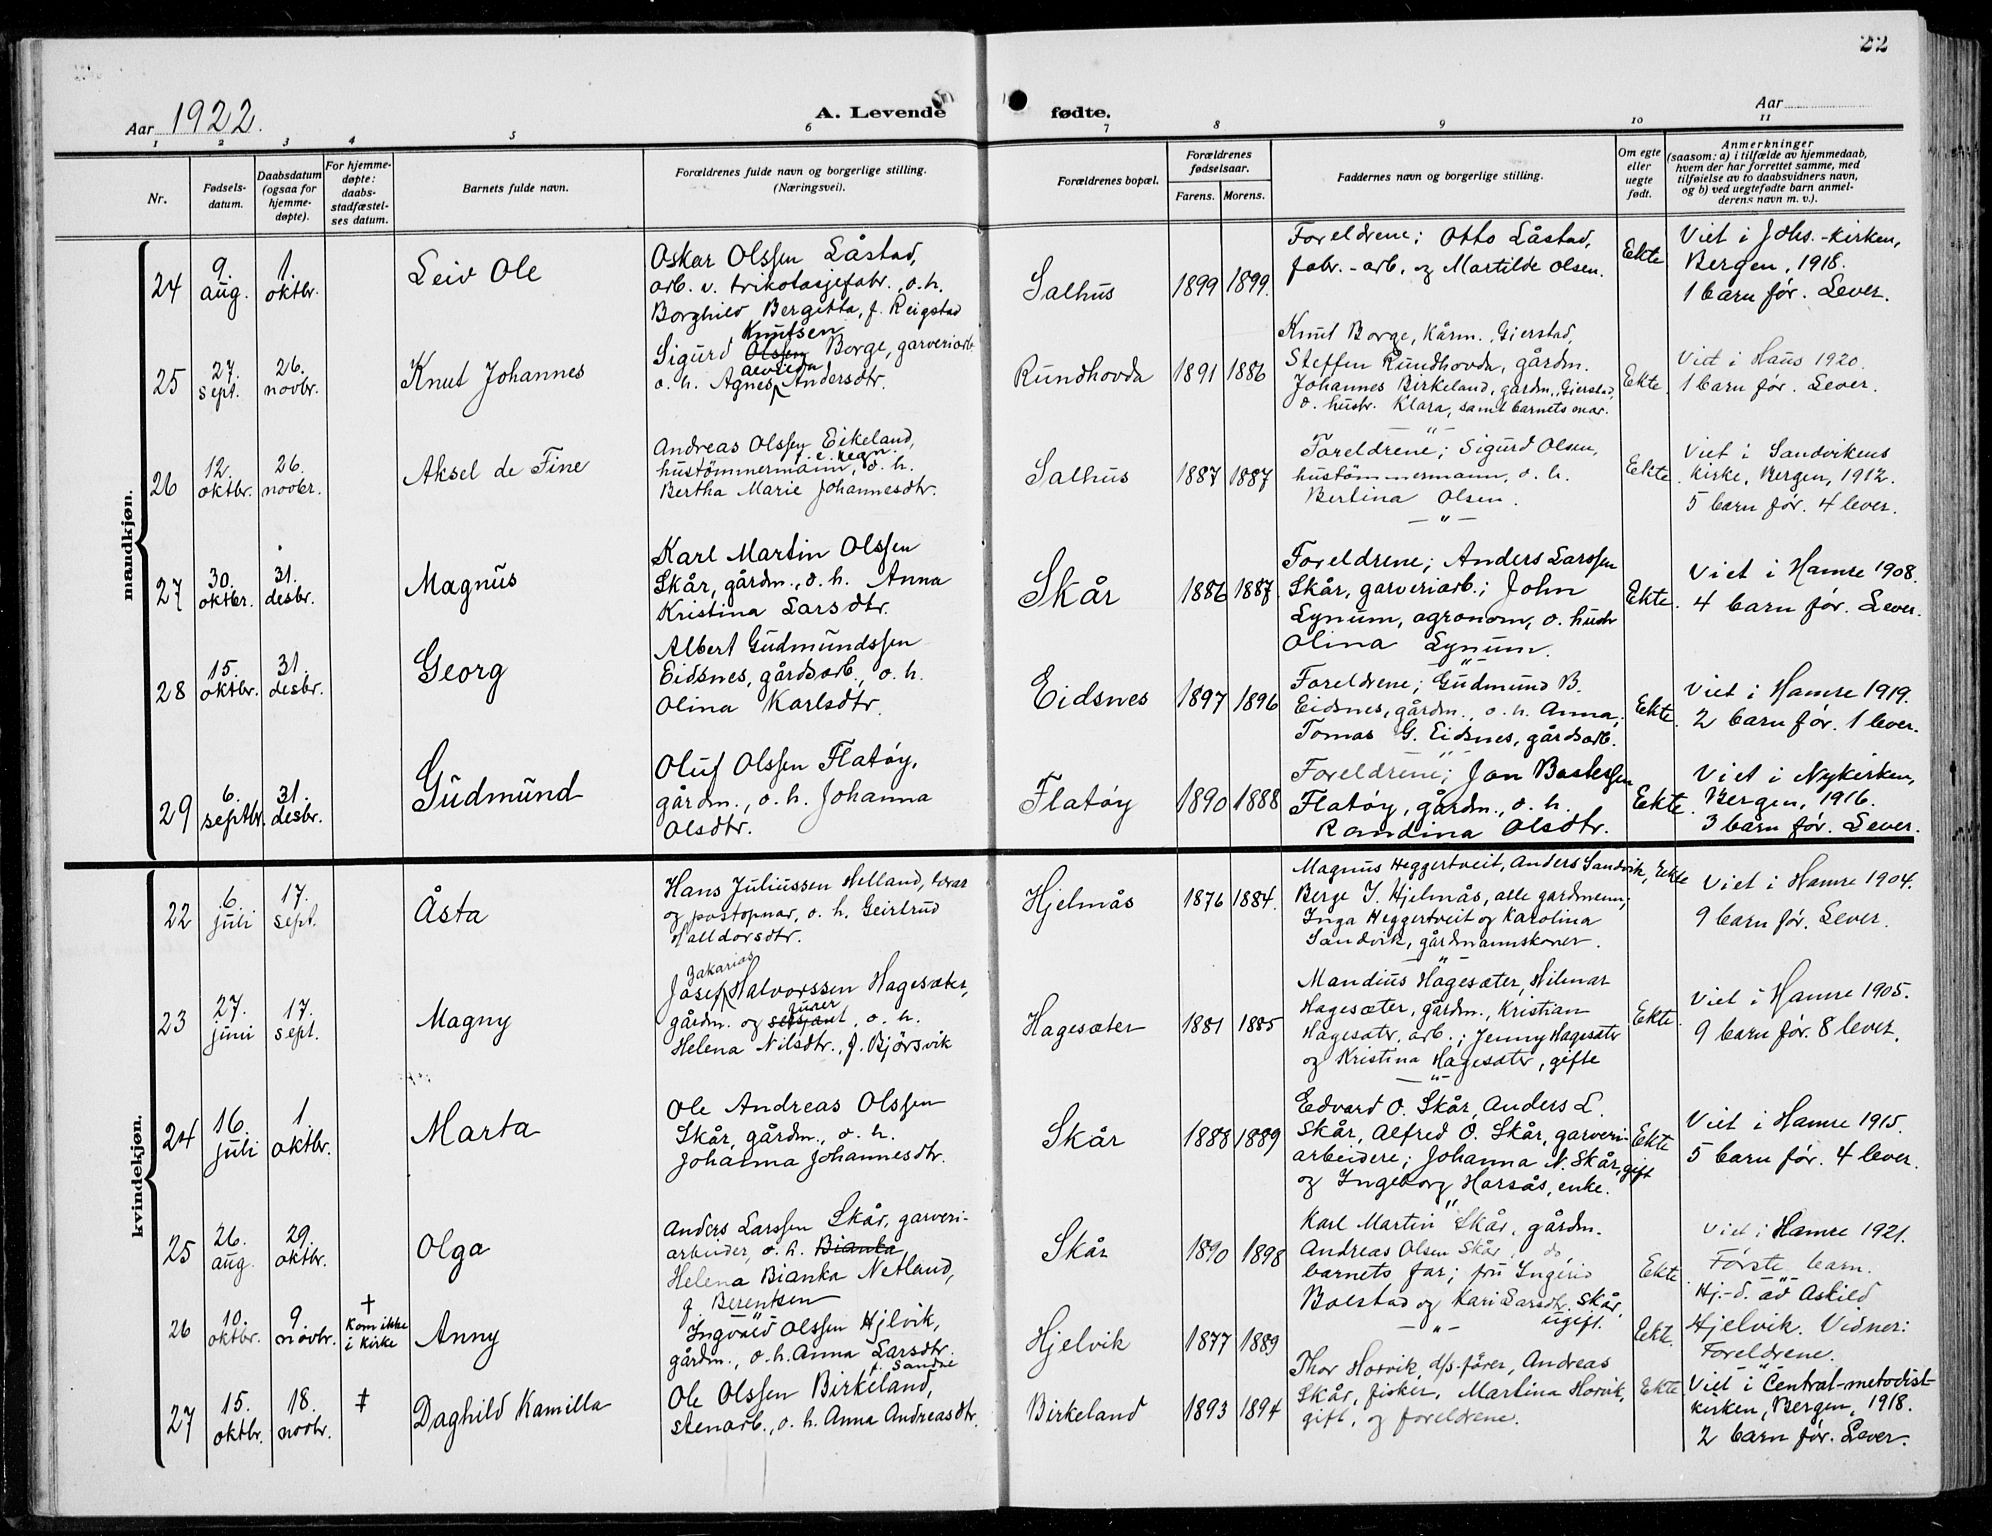 22
Aar 1922.
A. Levende
fødte.
Aar
1 2 3 4 5 6 7 8 9 10 11
Nr.
Fødsels-
datum.
Daabsdatum
(ogsaa for
hjemme-
døpte).
For hjemme-
døpte:
daabs-
stadfæstel-
ses datum.
Barnets fulde navn.
Forældrenes fulde navn og borgerlige stilling.
(Næringsvei).
Forældrenes bopæl.
Forældrenes
fødselsaar.
Farens. Morens.
Faddernes navn og borgerlige stilling.
Om egte
eller
uegte
født.
Anmerkninger
(saasom: a) i tilfælde av hjemmedaab,
hvem der har forrettet samme, med
tilføielse av to daabsvidners navn,
og b) ved uegtefødte barn anmel-
derens navn m. v.).
mandkjøn.
24
9.
aug.
1.
oktbr.
Leiv Ole
Oskar Olssen Låstad,
arb. v. trikotasjefabr., o. h.
Borghild Bergitta, f. Reigstad
Salhus
1899 1899.
Foreldrene; Otto Låstad,
fabr.-arb. og Martilde Olsen.
Ekte
Viet i Johs.-kirken,
Bergen, 1918.
1 barn før. Lever.
25
27.
sept.
26.
novbr.
Knut Johannes
Knutsen
Sigurd Olssen Borge, garveriarb.
o. h. Agnes Andersdtr.
Rundhovda
1891 1886
Knut Borge, kårm., Gjerstad,
Steffen Rundhovda, gårdm.
Johannes Birkeland, gårdm., Gjerstad,
o. hustr. Klara, samt barnets mor.
Ekte.
Viet i Haus 1920.
1 barn før. Lever.
26
12.
oktbr.
26.
novbr.
Aksel de Fine
Andreas Olssen Eikeland,
hustømmermann, o. h.
Bertha Marie Johannesdtr.
Salhus
1887 1887
Foreldrene; Sigurd Olsen,
hustømmermann, o. h.
Berlina Olsen.
— " —
Ekte
Viet i Sandvikens
kirke, Bergen, 1912.
5 barn før. 4 lever.
27
30.
oktbr.
31.
desbr.
Magnus
Karl Martin Olssen
Skår, gårdm., o. h. Anna
Kristina Larsdtr.
Skår
1886 1887
Foreldrene; Anders Larssen
Skår, garveriarb.; John
Lynum, agronom, o. hustr
Olina Lynum.
Ekte.
Viet i Hamre 1908.
4 barn før. Lever.
28
15.
oktbr.
31.
desbr.
Georg
Albert Gudmundssen
Eidsnes, gårdsarb., o. h.
Olina Karlsdtr.
Eidsnes
1897 1896
Foreldrene; Gudmund B.
Eidsnes, gårdm., o. h. Anna;
Tomas G. Eidsnes, gårdsarb.
Ekte.
Viet i Hamre 1919.
2 barn før. 1 lever.
29
6.
septbr.
31.
desbr.
Gudmund
Oluf Olssen Flatøy,
gårdm., o. h. Johanna
Olsdtr.
Flatøy
1890 1888
Foreldrene; Jon Bastessen
Flatøy, gårdm., o. h.
Randina Olsdtr.
Ekte.
Viet i Nykirken,
Bergen, 1916.
3 barn før. Lever.
kvindekjøn.
22
6.
juli
17.
sept.
Åsta
Hans Juliussen Helland, lærar
og postopnar, o. h. Geirtrud
Halldorsdtr.
Hjelmås
1876 1884.
Magnus Heggertveit, Anders Sandvik,
Berge J. Hjelmås, alle gardmenn;
Inga Heggertveit og Karolina
Sandvik, gårdmannskoner.
Ekte
Viet i Hamre 1904.
9 barn før. Lever.
23
27.
juni
17.
sept.
Magny
Zakarias
Josef Halvorssen Hagesæter,
furer
gårdm. og sersjant, o. h.
Helena Nilsdtr., f. Bjørsvik
Hagesæter
1881 1885
Mandius Hagesæter, Hilmar
Hagesæter, gårdm., Kristian
Hagesæter, arb.; Jenny Hagesæter
og Kristina Hagesæter, gifte
— " —
Ekte.
Viet i Hamre 1905.
9 barn før. 8 lever.
24
16.
juli
1.
oktbr.
Marta
Ole Andreas Olssen
Skår, gårdm., o. h.
Johanna Johannesdtr.
Skår
1888 1889
Edvard O. Skår, Anders L.
Skår, Alfred O. Skår, garveri-
arbeidere; Johanna N. Skår, gift
og Ingeborg Harsås, enke.
Ekte
Viet i Hamre 1915.
5 barn før. 4 lever.
25
26.
aug.
29.
oktbr.
Olga
Anders Larssen Skår, garveri-
arbeider, o. h. Bianka
Helena Bianka Netland,
f. Berentsen
Skår
1890 1898
Karl Martin Skår, gårdm.
Andreas Olsen Skår, do,
barnets far; fru Ingerid
Bolstad og Kari Larsdtr. Skår,
ugift.
— " —
Ekte
Viet i Hamre 1921.
Første barn.
— " —
26
10.
oktbr.
9.
novbr.
†
Kom ikke
i kirke
Anny
Ingvald Olssen Hjelvik,
gårdm., o. h. Anna Larsdtr.
f. Sandne
Hjelvik
1877 1889
Ekte.
Hj.-d. av Askild
Hjelvik. Vidner:
Foreldrene.
27
15.
oktbr.
18.
novbr.
‡
Daghild Kamilla
Ole Olssen Birkeland,
stenarb., o. h. Anna Andreasdtr.
Birkeland
1893 1894
Thor Horvik, d/s-fører, Andreas
Skår, fisker, Martina Horvik,
gift, og foreldrene.
Ekte.
Viet i Central-metodist-
kirken, Bergen, 1918.
2 barn før. Lever.